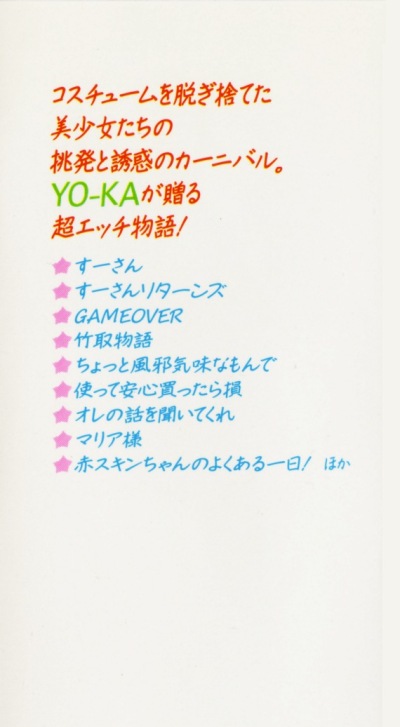 コスチュームを脱ぎ捨てた
美少女たちの
挑発と誘惑のカーニバル。
YO-KAが贈る
超エッチ物語!
★すーさん
★すーさんリターンズ
★GAMEOVER
★竹取物語
★ちょっと風邪気味なもんで
★使って安心買ったら損
★オレの話を聞いてくれ
★マリア様
★赤スキンちゃんのよくある一日! ほか